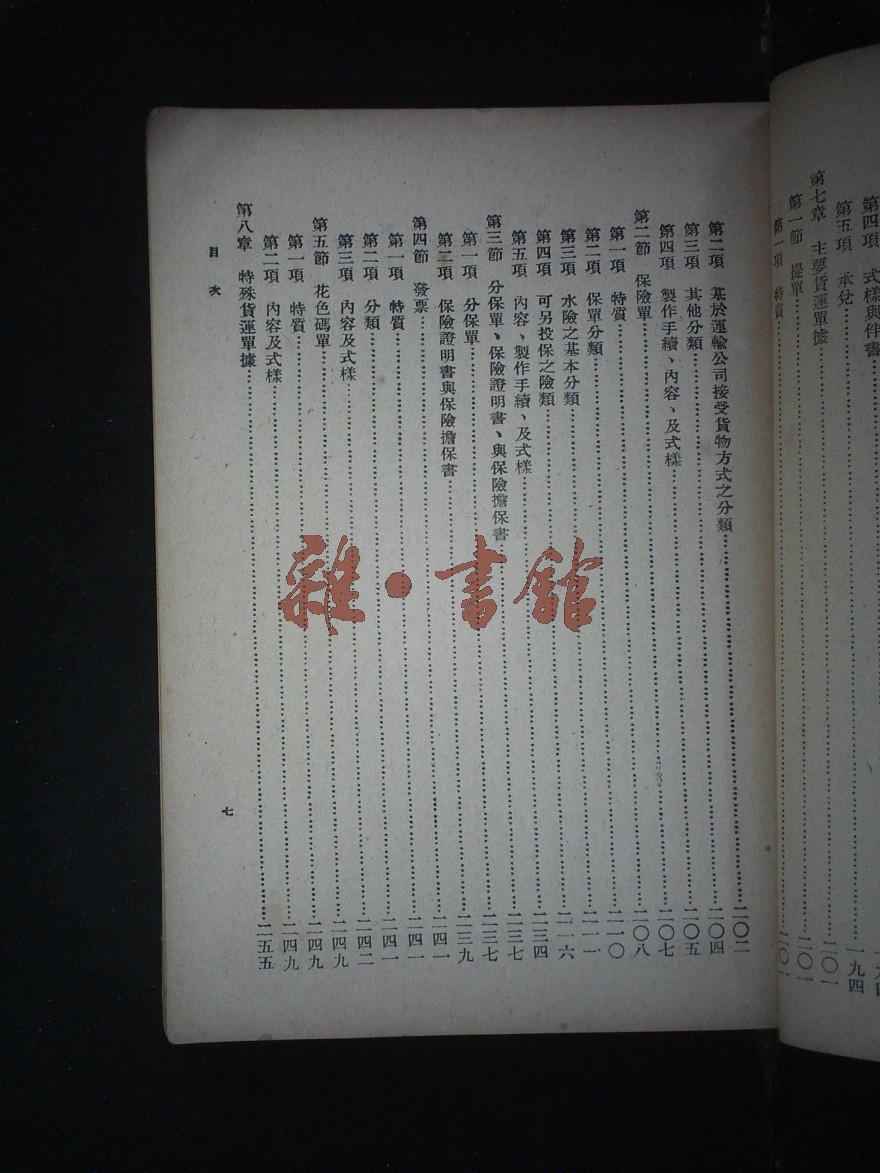 第四項 式樣與伴書
第五項 承兌……一九四
第七章 主要貨運單據……二〇一
第一節 提單……二〇一
第一項 特質……二〇一
第二項 基於運輸公司接受貨物方式之分類……二〇二
第三項 其他分類……二〇四
第四項 製作手續、內容、及式樣……二〇五
第二節 保險單……二〇七
第一項 特質……二〇八
第二項 保單分類……二一〇
第三項 水險之基本分類……二一一
第四項 可另投保之險類……二一六
第五項 內容、製作手續、及式樣……二三四
第三節 分保單、保險證明書、與保險擔保書……二三七
第一項 分保單……二三七
第二項 保險證明書與保險擔保書……二三九
第四節 發票……二四一
第一項 特質……二四一
第二項 分類……二四一
第三項 內容及式樣……二四二
第五節 花色碼單……二四九
第一項 特質……二四九
第二項 內容及式樣……二四九
第八章 特殊貨運單據……二五五
目次 七
雜·書館